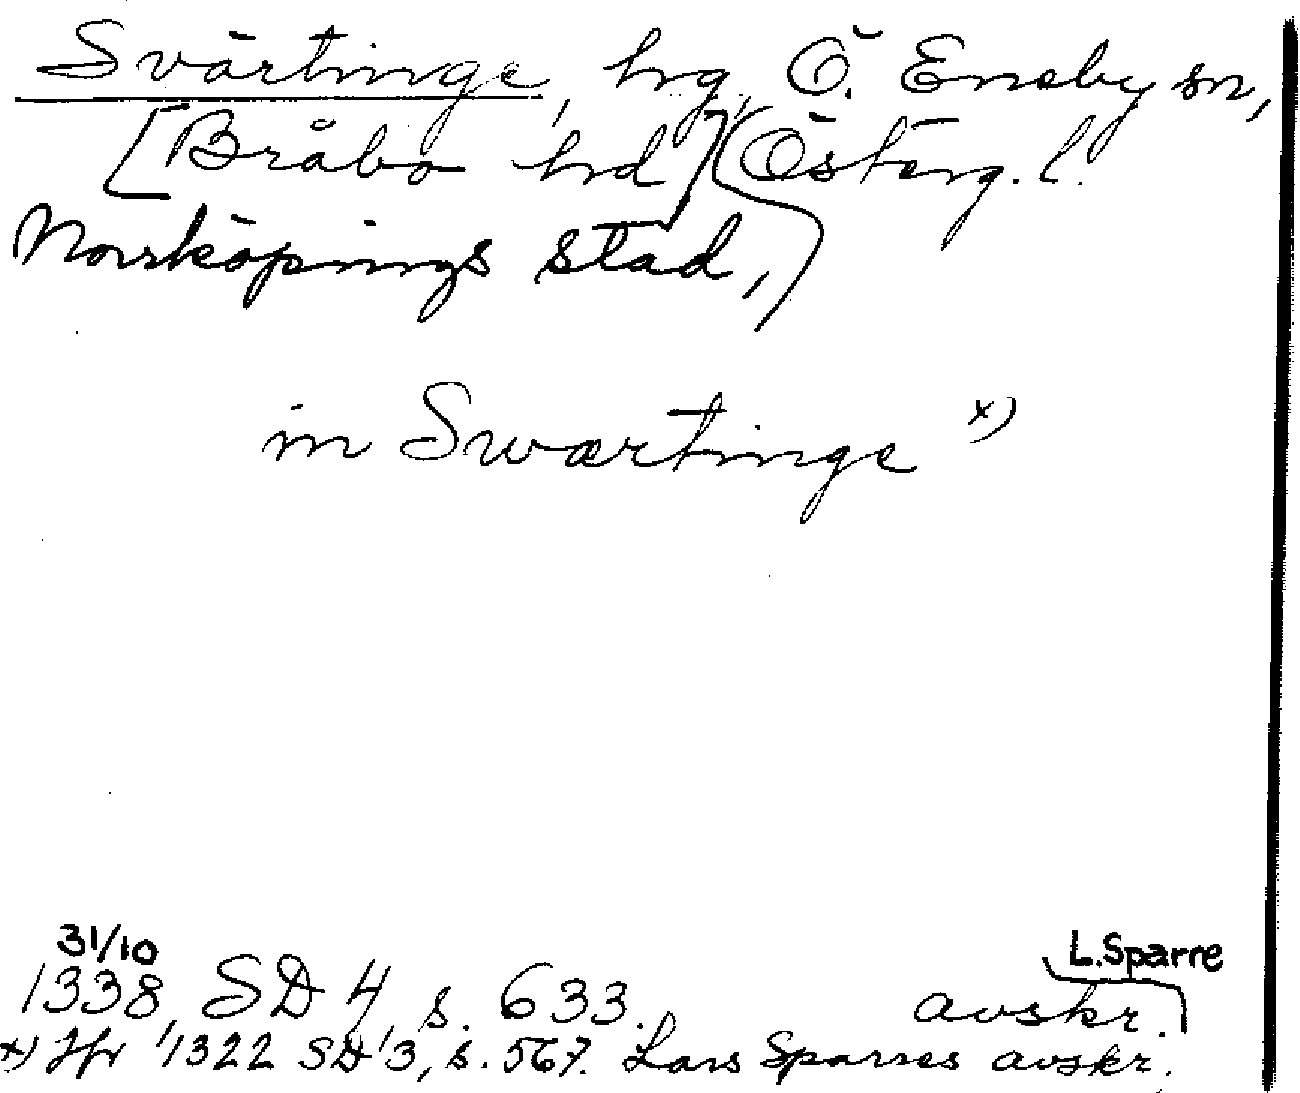 Svärtinge, hrg, Ö. Eneby sn,
[Bråbo hrd] Österg. l.
Norrköpings stad,
in Swærtinge x)
31/10
L. Sparre
1338, SD 4 s. 633. avskr.
x) Jfr 1322 SD 3, s. 567. Lars Sparres avskr.